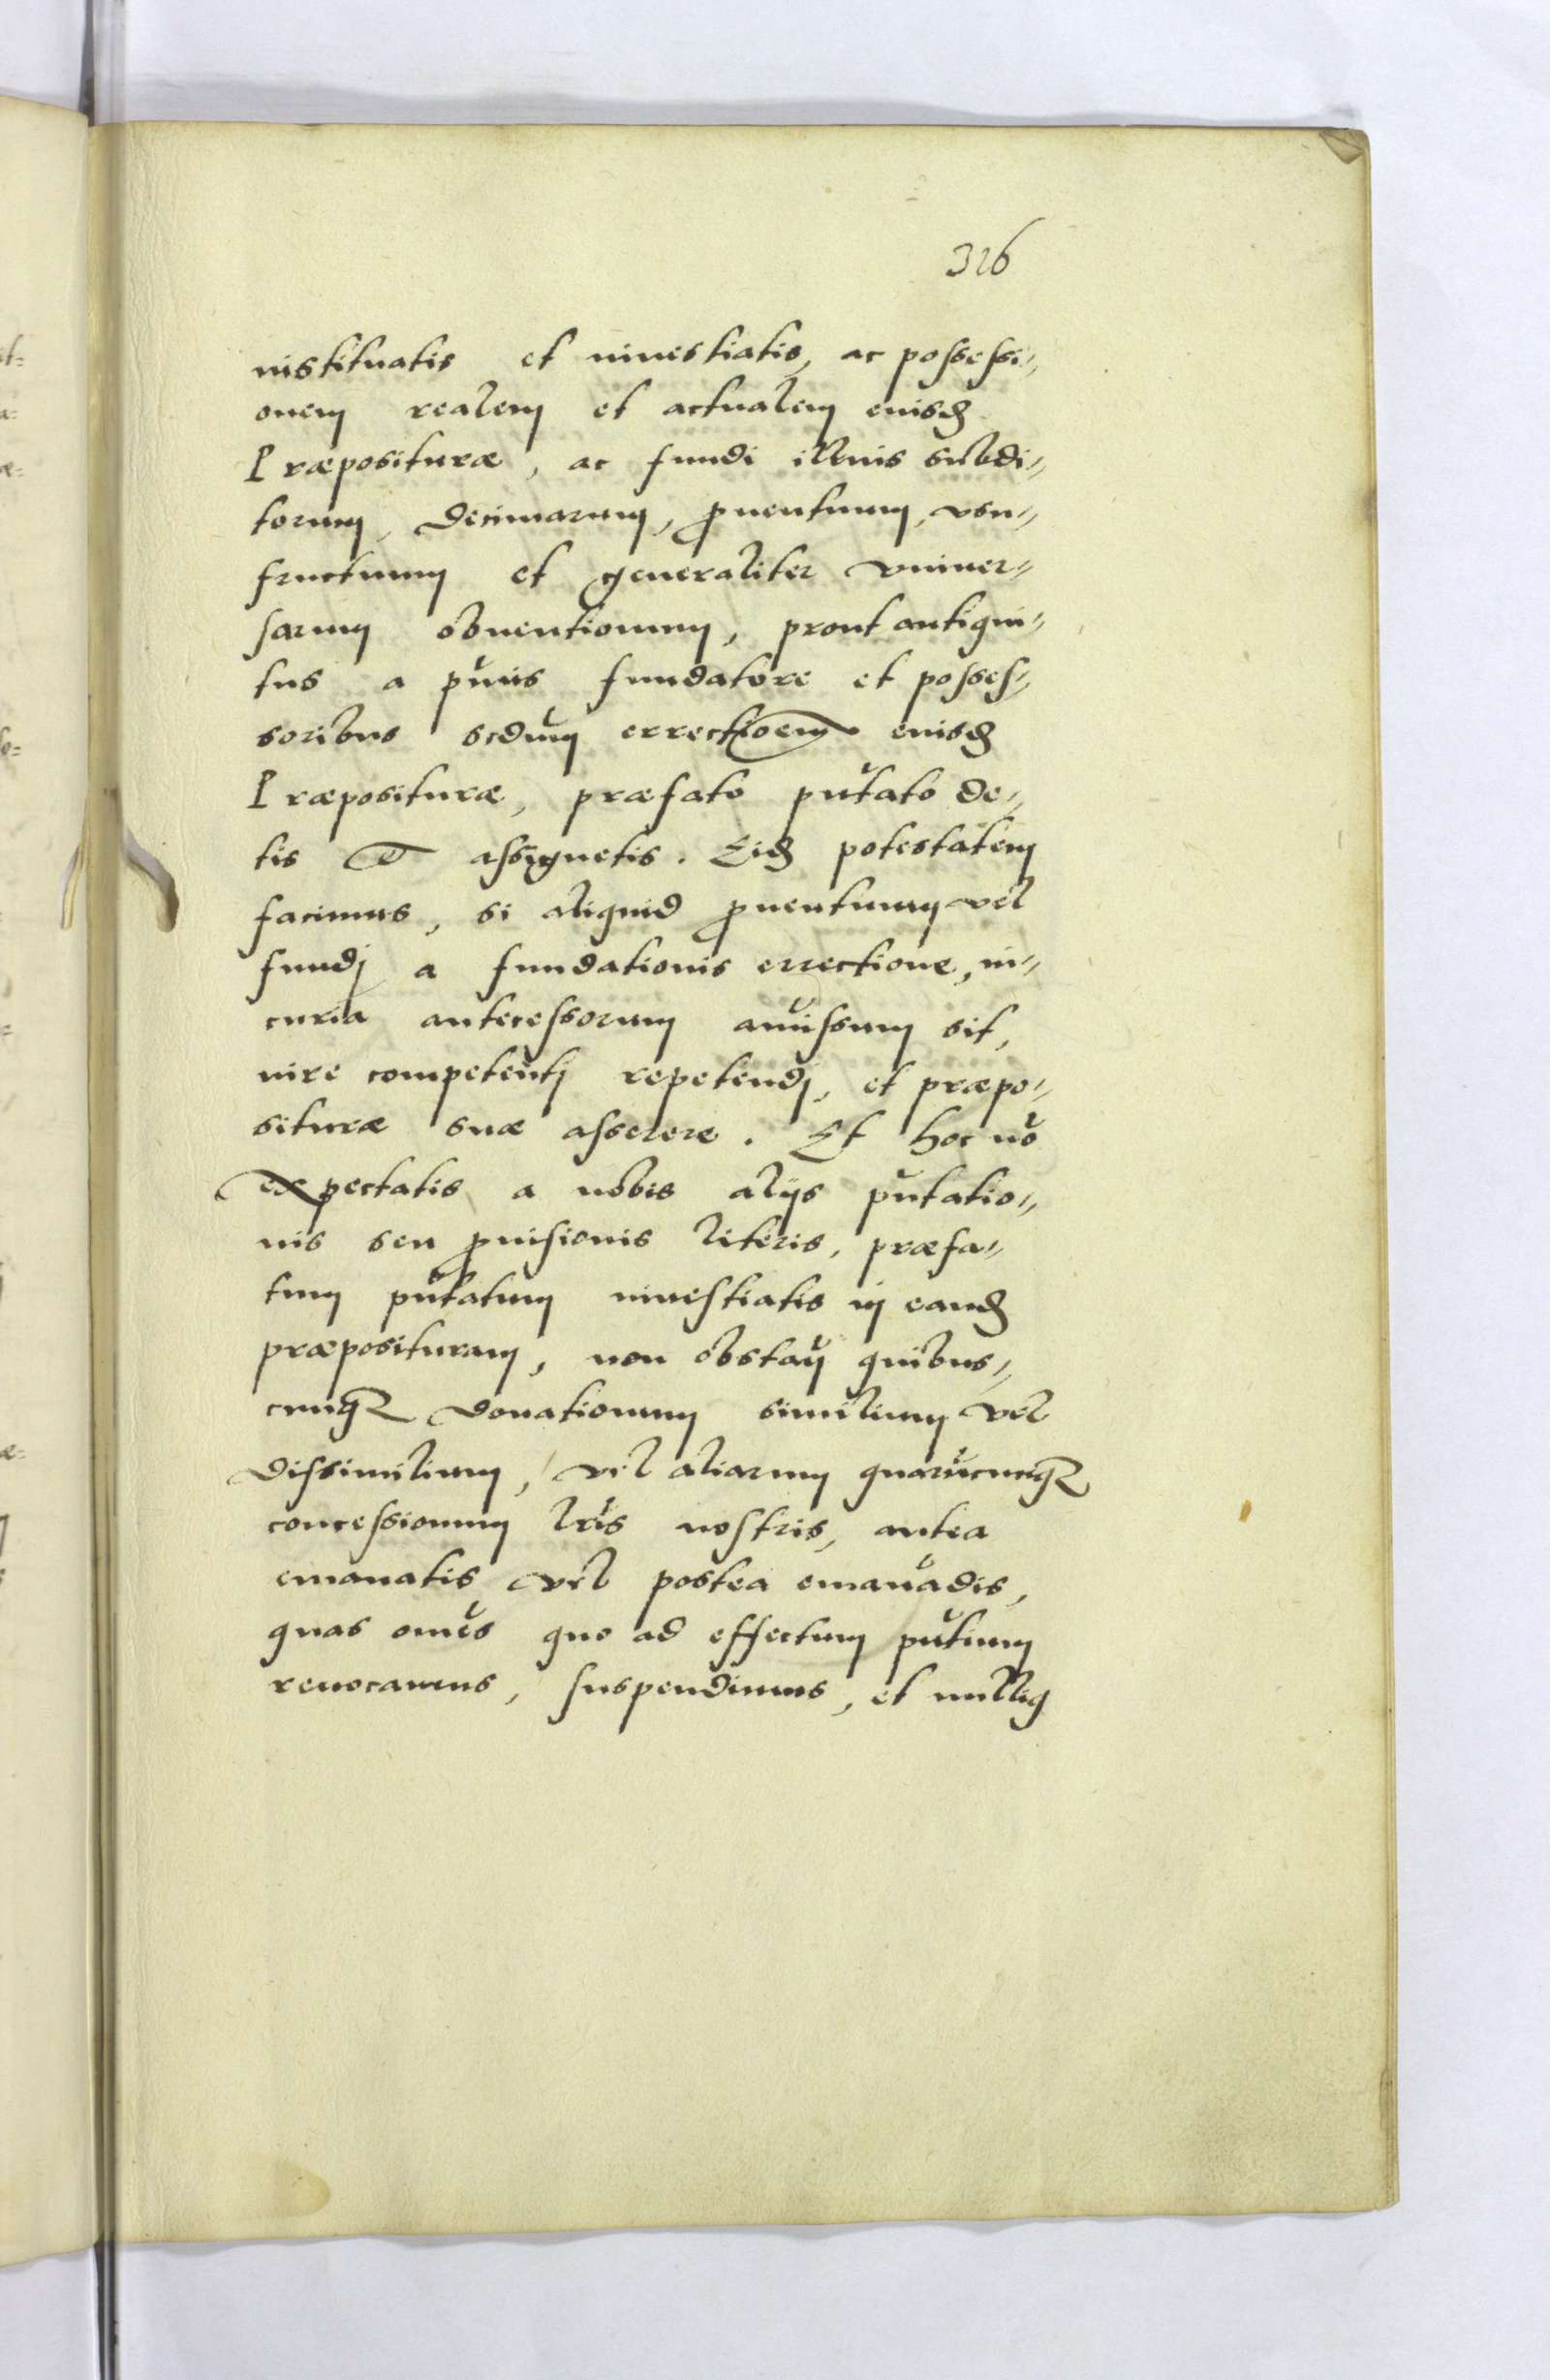 326
instituatis et inuestiatis, ac possessi-
onem realem et actualem eiusd
Præposituræ, ac fundi illius subdi-
torum, decimarum, ꝓuentuum, vsu-
fructuum et generaliter vniuer-
sarum obuentionum, prout antiqui-
tus a pũis fundatore et posses-
soribus scdum errectioem eiusd
Præposituræ, præfato pñtato de-
tis et assignetis. Eid potestatem
facimus, si aliquid ꝓuentuum vel
fundj a fundationis errectione, in-
curia antecessorum auŭssum sit,
iure competentj repetendj, et præpo-
situræ suæ asserere. Et hoc nõ
expectatis a nobis alijs pñtatio-
nis seu ꝓuisionis literis, præfa-
tum pñtatum inuestiatis in eand
præposituram, non obstañ quibus-
cunqꝫ donationum similium vel
dissimilium, vel aliarum quarũcunqꝫ
concessionum lris nostris, antea
emanatis vel postea emanãdis,
quas omẽs quo ad effectum pñtium
reuocamus, suspendimus, et nulliq